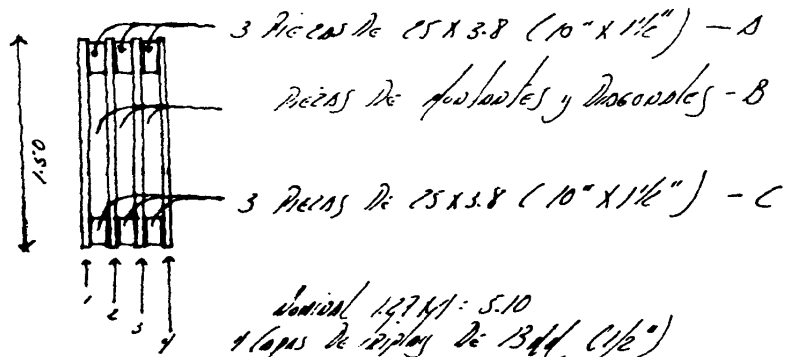 3 Piezas De 25 X 3.8 (10" X 1 1/2") — A
Piezas De Montantes y Diagonales - B
1.50
3 Piezas De 25 X 3.8 (10" X 1 1/2") — C
1 2 3 4
Nominal 1.27 X 4 = 5.10
4 Capas De triplay De 13 MM (1/2")